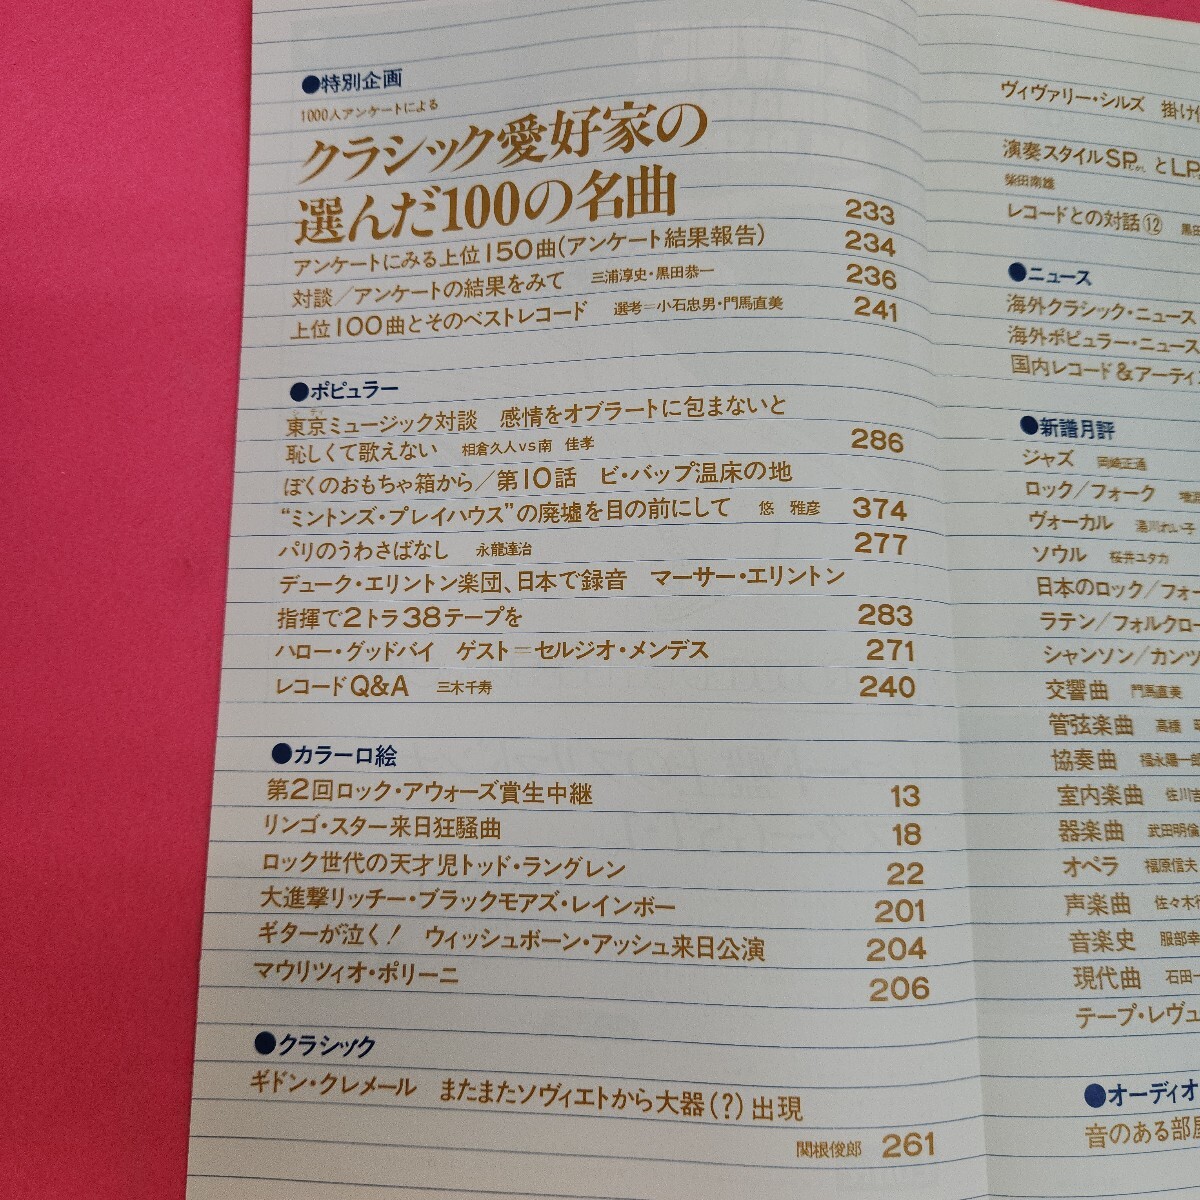 ●特別企画
1000人アンケートによる
クラシック愛好家の
選んだ100の名曲 233
アンケートにみる上位150曲(アンケート結果報告) 234
対談/アンケートの結果をみて 三浦淳史・黒田恭一 236
上位100曲とそのベストレコード 選考=小石忠男・門馬直美 241
●ポピュラー
東京ミュージック対談 感情をオブラートに包まないと
恥しくて歌えない 相倉久人vs南 佳孝 286
ぼくのおもちゃ箱から/第10話 ビ・バップ温床の地
“ミントンズ・プレイハウス”の廃墟を目の前にして 悠 雅彦 374
パリのうわさばなし 永瀧達治 277
デューク・エリントン楽団、日本で録音 マーサー・エリントン
指揮で2トラ38テープを 283
ハロー・グッドバイ ゲスト=セルジオ・メンデス 271
レコードQ&A 三木千寿 240
●カラー口絵
第2回ロック・アウォーズ賞生中継 13
リンゴ・スター来日狂騒曲 18
ロック世代の天才児トッド・ラングレン 22
大進撃リッチー・ブラックモアズ・レインボー 201
ギターが泣く! ウィッシュボーン・アッシュ来日公演 204
マウリツィオ・ポリーニ 206
●クラシック
ギドン・クレメール またまたソヴィエトから大器(?)出現
関根俊郎 261
ヴィヴァリー・シルズ 掛け
演奏スタイルSPからLP
柴田南雄
レコードとの対話⑫ 黒田
●ニュース
海外クラシック・ニュース
海外ポピュラー・ニュース
国内レコード&アーティス
●新譜月評
ジャズ 岡崎正通
ロック/フォーク
ヴォーカル 湯川れい子
ソウル 桜井ユタカ
日本のロック/フォー
ラテン/フォルクロー
シャンソン/カンツ
交響曲 門馬直美
管弦楽曲 高橋
協奏曲 福永陽一郎
室内楽曲 佐川吉
器楽曲 武田明倫
オペラ 福原信夫
声楽曲 佐々木行
音楽史 服部幸
現代曲 石田一
テープ・レヴュ
●オーディオ
音のある部屋